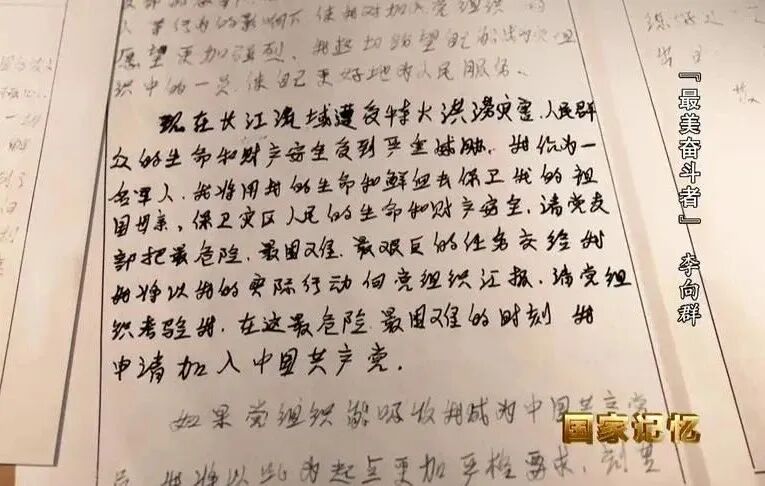 人
愿望更加强烈。我迫切盼望自己能成为党组
织中的一员,使自己更好地为人民服务。
现在长江流域遭受特大洪涝灾害,人民群
众的生命和财产安全受到严重威胁。我作为一
名军人,我将用我的生命和鲜血去保卫我的祖
国母亲,保卫灾区人民的生命和财产安全,请党支
部把最危险、最困难、最艰巨的任务交给我
我将以我的实际行动向党组织汇报,请党组
织考验我,在这最危险、最困难的时刻 我
申请加入中国共产党。
如果党组织能吸收我成为中国共产党
员 我将以此为起点更加严格要求,
『最美奋斗者』 李向群
国家记忆